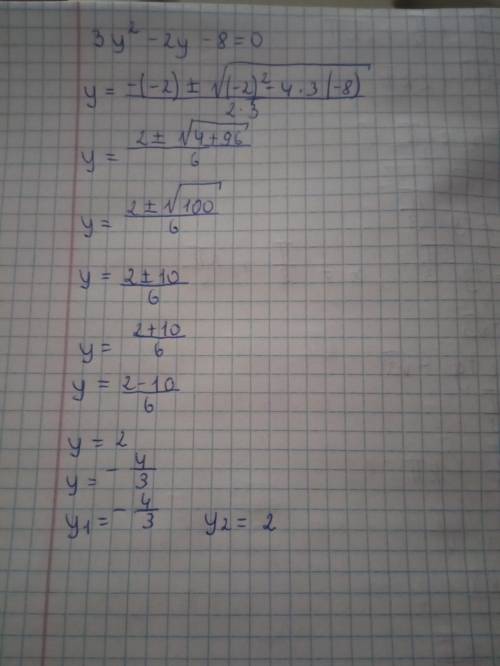 3y² - 2y - 8 = 0
y = -(-2) ± √(-2)² - 4 · 3 (-8) / 2 · 3
y = 2 ± √4 + 96 / 6
y = 2 ± √100 / 6
y = 2 ± 10 / 6
y = 2 + 10 / 6
y = 2 - 10 / 6
y = 2
y = - 4/3
y₁ = - 4/3 y₂ = 2